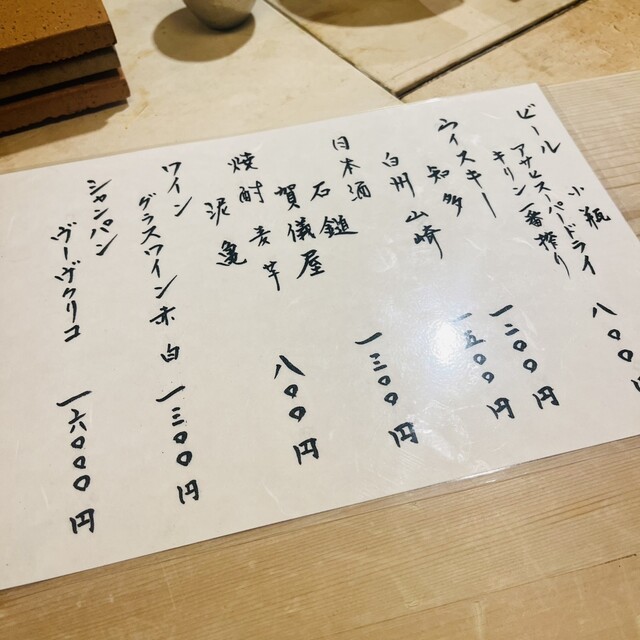 ビール 小瓶 八〇〇円
アサヒスーパードライ
キリン一番搾り
ウィスキー
知多 一二〇〇円
白州 山崎 一五〇〇円
日本酒
石鎚 一三〇〇円
賀儀屋
焼酎 麦 芋 八〇〇円
泥亀
ワイン
グラスワイン 赤 白 一三〇〇円
シャンパン
ヴーヴクリコ 一六〇〇〇円